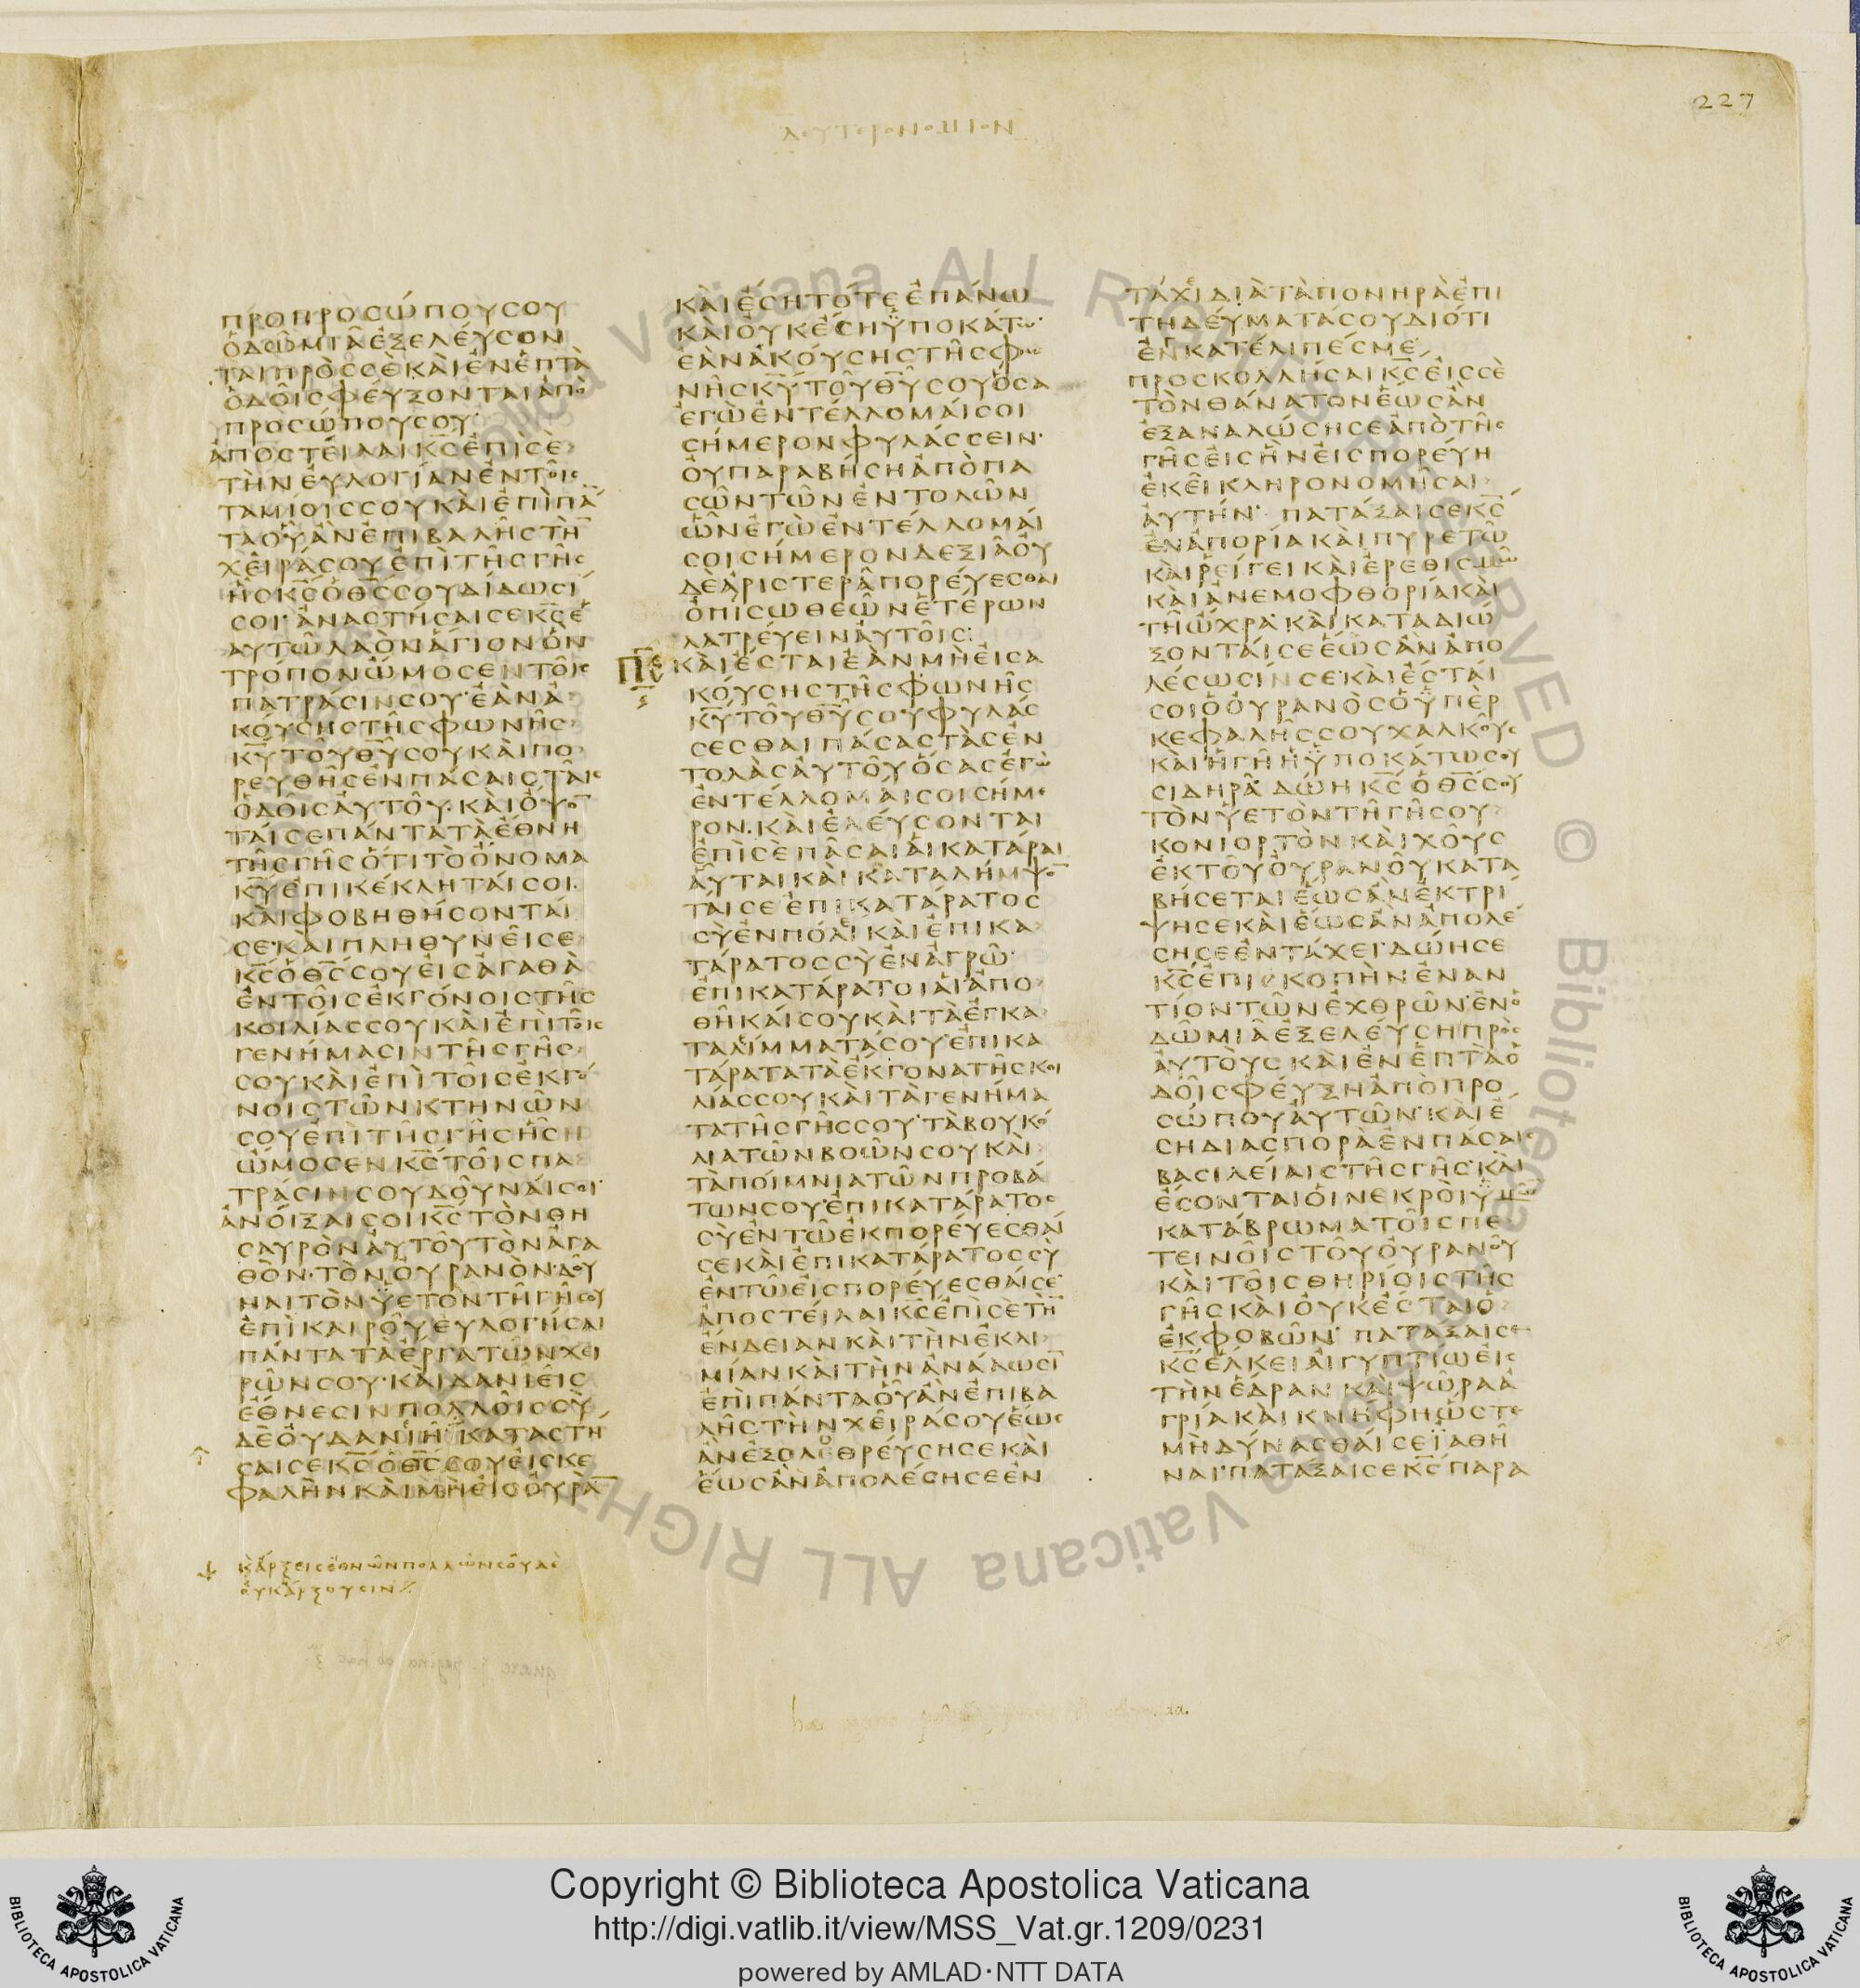 227
ΔΕΥΤΕΡΟΝΟΜΙΟΝ
ΠΡΟΠΡΟΣΩΠΟΥΣΟΥ
ὉΔΩΜΙΑΕΞΕΛΕΥΣΟΝ
ΤΑΙΠΡΟΣΣΕΚΑΙΕΝΕΠΤΑ
ΟΔΟΙΣΦΕΥΞΟΝΤΑΙΑΠΟ
ΠΡΟΣΩΠΟΥΣΟΥ
ΑΠΟΣΤΕΙΛΑΙΚ̅Σ̅ΕΠΙΣΕ
ΤΗΝΕΥΛΟΓΙΑΝΕΝΤΟΙΣ
ΤΑΜΙΟΙΣΣΟΥΚΑΙΕΠΙΠΑ̅
ΤΑΟΥΑΝΕΠΙΒΑΛΗΣΤΗ̅
ΧΕΙΡΑΣΟΥΕΠΙΤΗΣΓΗΣ
ΗΣΚ̅Σ̅ΟΘ̅Σ̅ΣΟΥΔΙΔΩΣΙ
ΣΟΙ·ΑΝΑΣΤΗΣΑΙΣΕΚ̅Σ̅Ε
ΑΥΤΩΛΑΟΝΑΓΙΟΝΟΝ
ΤΡΟΠΟΝΩΜΟΣΕΝΤΟΙΣ
ΠΑΤΡΑΣΙΝΣΟΥ·ΕΑΝΑ
ΚΟΥΣΗΣΤΗΣΦΩΝΗΣ
Κ̅Υ̅ΤΟΥΘ̅Υ̅ΣΟΥΚΑΙΠΟ
ΡΕΥΘΗΣΕΝΠΑΣΑΙΣΤΑΙΣ
ΟΔΟΙΣΑΥΤΟΥ·ΚΑΙΟΨΟ̅
ΤΑΙΣΕΠΑΝΤΑΤΑΕΘΝΗ
ΤΗΣΓΗΣΟΤΙΤΟΟΝΟΜΑ
Κ̅Υ̅ΕΠΙΚΕΚΛΗΤΑΙΣΟΙ·
ΚΑΙΦΟΒΗΘΗΣΟΝΤΑΙ
ΣΕ·ΚΑΙΠΛΗΘΥΝΕΙΣΕ
Κ̅Σ̅ΟΘ̅Σ̅ΣΟΥΕΙΣΑΓΑΘΑ
ΕΝΤΟΙΣΕΚΓΟΝΟΙΣΤΗΣ
ΚΟΙΛΙΑΣΣΟΥΚΑΙΕΠΙΤΟΙΣ
ΓΕΝΗΜΑΣΙΝΤΗΣΓΗΣ
ΣΟΥΚΑΙΕΠΙΤΟΙΣΕΚΓΟ
ΝΟΙΣΤΩΝΚΤΗΝΩΝ
ΣΟΥΕΠΙΤΗΣΓΗΣΗΣΗ
ΩΜΟΣΕΝΚ̅Σ̅ΤΟΙΣΠΑ
ΤΡΑΣΙΝΣΟΥΔΟΥΝΑΙΣΟΙ
ΑΝΟΙΞΑΙΣΟΙΚ̅Σ̅ΤΟΝΘΗ
ΣΑΥΡΟΝΑΥΤΟΥΤΟΝΑΓΑ
ΘΟΝ·ΤΟΝΟΥΡΑΝΟΝ·ΔΟΥ
ΝΑΙΤΟΝΫΕΤΟΝΤΗΓΗΣΟΥ
ΕΠΙΚΑΙΡΟΥΕΥΛΟΓΗΣΑΙ
ΠΑΝΤΑΤΑΕΡΓΑΤΩΝΧΕΙ
ΡΩΝΣΟΥ·ΚΑΙΔΑΝΙΕΙΣ
ΕΘΝΕΣΙΝΠΟΛΛΟΙΣΣΥ
ΔΕΟΥΔΑΝΙΗ·ΚΑΤΑΣΤΗ
ΣΑΙΣΕΚ̅Σ̅ΟΘ̅Σ̅ΣΟΥΕΙΣΚΕ
ΦΑΛΗΝΚΑΙΜΗΕΙΣΟΥΡΑ̅
ΚΑΡΞΕΙΣΕΘΝΩΝΠΟΛΛΩΝΣΟΥΔΕ
ΟΥΚΑΡΞΟΥΣΙΝ
ΚΑΙΕΣΗΤΟΤΕΕΠΑΝΩ
ΚΑΙΟΥΚΕΣΗΫΠΟΚΑΤΩ·
ΕΑΝΑΚΟΥΣΗΣΤΗΣΦΩ
ΝΗΣΚ̅Υ̅ΤΟΥΘ̅Υ̅ΣΟΥΟΣΑ
ΕΓΩΕΝΤΕΛΛΟΜΑΙΣΟΙ
ΣΗΜΕΡΟΝΦΥΛΑΣΣΕΙΝ·
ΟΥΠΑΡΑΒΗΣΗΑΠΟΠΑ
ΣΩΝΤΩΝΕΝΤΟΛΩΝ
ΩΝΕΓΩΕΝΤΕΛΛΟΜΑΙ
ΣΟΙΣΗΜΕΡΟΝΔΕΞΙΑΟΥ
ΔΕΑΡΙΣΤΕΡΑΠΟΡΕΥΕΣΘΑΙ
ΟΠΙΣΩΘΕΩΝΕΤΕΡΩΝ
ΛΑΤΡΕΥΕΙΝΑΥΤΟΙΣ:
ΚΑΙΕΣΤΑΙΕΑΝΜΗΕΙΣΑ
ΚΟΥΣΗΣΤΗΣΦΩΝΗΣ
Κ̅Υ̅ΤΟΥΘ̅Υ̅ΣΟΥΦΥΛΑΣ
ΣΕΣΘΑΙΠΑΣΑΣΤΑΣΕΝ
ΤΟΛΑΣΑΥΤΟΥΟΣΑΣΕΓΩ
ΕΝΤΕΛΛΟΜΑΙΣΟΙΣΗΜΕ
ΡΟΝ·ΚΑΙΕΛΕΥΣΟΝΤΑΙ
ΕΠΙΣΕΠΑΣΑΙΑΙΚΑΤΑΡΑΙ
ΑΥΤΑΙΚΑΙΚΑΤΑΛΗΜΨΟ̅
ΤΑΙΣΕΕΠΙΚΑΤΑΡΑΤΟΣ
ΣΥΕΝΠΟΛΙΚΑΙΕΠΙΚΑ
ΤΑΡΑΤΟΣΣΥΕΝΑΓΡΩ·
ΕΠΙΚΑΤΑΡΑΤΟΙΑΙΑΠΟ
ΘΗΚΑΙΣΟΥΚΑΙΤΑΕΓΚΑ
ΤΑΛΙΜΜΑΤΑΣΟΥ·ΕΠΙΚΑ
ΤΑΡΑΤΑΤΑΕΚΓΟΝΑΤΗΣΚΟΙ
ΛΙΑΣΣΟΥΚΑΙΤΑΓΕΝΗΜΑ
ΤΑΤΗΣΓΗΣΣΟΥ·ΤΑΒΟΥΚΟ
ΛΙΑΤΩΝΒΟΩΝΣΟΥΚΑΙ
ΤΑΠΟΙΜΝΙΑΤΩΝΠΡΟΒΑ
ΤΩΝΣΟΥ·ΕΠΙΚΑΤΑΡΑΤΟΣ
ΣΥΕΝΤΩΕΚΠΟΡΕΥΕΣΘΑΙ
ΣΕΚΑΙΕΠΙΚΑΤΑΡΑΤΟΣΣΥ
ΕΝΤΩΕΙΣΠΟΡΕΥΕΣΘΑΙΣΕ
ΑΠΟΣΤΕΙΛΑΙΚ̅Σ̅ΕΠΙΣΕΤΗ̅
ΕΝΔΕΙΑΝΚΑΙΤΗΝΕΚΛΙ
ΜΙΑΝΚΑΙΤΗΝΑΝΑΛΩΣΙ̅
ΕΠΙΠΑΝΤΑΟΥΑΝΕΠΙΒΑ
ΛΗΣΤΗΝΧΕΙΡΑΣΟΥΕΩΣ
ΑΝΕΞΟΛΕΘΡΕΥΣΗΣΕΚΑΙ
ΕΩΣΑΝΑΠΟΛΕΣΗΣΕΕΝ
ΤΑΧΙΔΙΑΤΑΠΟΝΗΡΑΕΠΙ
ΤΗΔΕΥΜΑΤΑΣΟΥΔΙΟΤΙ
ΕΝΚΑΤΕΛΙΠΕΣΜΕ
ΠΡΟΣΚΟΛΛΗΣΑΙΚ̅Σ̅ΕΙΣΣΕ
ΤΟΝΘΑΝΑΤΟΝΕΩΣΑΝ
ΕΞΑΝΑΛΩΣΗΣΕΑΠΟΤΗΣ
ΓΗΣΕΙΣΗΝΕΙΣΠΟΡΕΥΗ
ΕΚΕΙΚΛΗΡΟΝΟΜΗΣΑΙ
ΑΥΤΗΝ· ΠΑΤΑΞΑΙΣΕΚ̅Σ̅
ΕΝΑΠΟΡΙΑΚΑΙΠΥΡΕΤΩ
ΚΑΙΡΕΙΓΕΙΚΑΙΕΡΕΘΙΣΜΩ
ΚΑΙΑΝΕΜΟΦΘΟΡΙΑΚΑΙ
ΤΗΩΧΡΑ·ΚΑΙΚΑΤΑΔΙΩ
ΞΟΝΤΑΙΣΕΕΩΣΑΝΑΠΟ
ΛΕΣΩΣΙΝΣΕ·ΚΑΙΕΣΤΑΙ
ΣΟΙΟΟΥΡΑΝΟΣΟΫΠΕΡ
ΚΕΦΑΛΗΣΣΟΥΧΑΛΚΟΥΣ
ΚΑΙΗΓΗΗΫΠΟΚΑΤΩΣΟΥ
ΣΙΔΗΡΑ· ΔΩΗΚ̅Σ̅ΟΘ̅Σ̅ΣΟΥ
ΤΟΝΫΕΤΟΝΤΗΓΗΣΟΥ
ΚΟΝΙΟΡΤΟΝΚΑΙΧΟΥΣ
ΕΚΤΟΥΟΥΡΑΝΟΥΚΑΤΑ
ΒΗΣΕΤΑΙΕΩΣΑΝΕΚΤΡΙ
ΨΗΣΕΚΑΙΕΩΣΑΝΑΠΟΛΕ
ΣΗΣΕΕΝΤΑΧΕΙ·ΔΩΗΣΕ
Κ̅Σ̅ΕΠΙΣΚΟΠΗΝΕΝΑΝ
ΤΙΟΝΤΩΝΕΧΘΡΩΝ·ΕΝΟ
ΔΩΜΙΑΕΞΕΛΕΥΣΗΠΡΟΣ
ΑΥΤΟΥΣΚΑΙΕΝΕΠΤΑΟ
ΔΟΙΣΦΕΥΞΗΑΠΟΠΡΟ
ΣΩΠΟΥΑΥΤΩΝ·ΚΑΙΕ
ΣΗΔΙΑΣΠΟΡΑΕΝΠΑΣΑΙΣ
ΒΑΣΙΛΕΙΑΙΣΤΗΣΓΗΣ·ΚΑΙ
ΕΣΟΝΤΑΙΟΙΝΕΚΡΟΙΫΜΩ
ΚΑΤΑΒΡΩΜΑΤΟΙΣΠΕ
ΤΕΙΝΟΙΣΤΟΥΟΥΡΑΝΟΥ
ΚΑΙΤΟΙΣΘΗΡΙΟΙΣΤΗΣ
ΓΗΣΚΑΙΟΥΚΕΣΤΑΙΟ
ΕΚΦΟΒΩΝ· ΠΑΤΑΞΑΙΣΕ
Κ̅Σ̅ΕΛΚΕΙΑΙΓΥΠΤΙΩΕΙΣ
ΤΗΝΕΔΡΑΝΚΑΙΨΩΡΑΑ
ΓΡΙΑΚΑΙΚΝΗΦΗΩΣΤΕ
ΜΗΔΥΝΑΣΘΑΙΣΕΪΑΘΗ
ΝΑΙ·ΠΑΤΑΞΑΙΣΕΚ̅Σ̅ΠΑΡΑ
Copyright © Biblioteca Apostolica Vaticana
http://digi.vatlib.it/view/MSS_Vat.gr.1209/0231
powered by AMLAD·NTT DATA
BIBLIOTECA APOSTOLICA VATICANA
BIBLIOTECA APOSTOLICA VATICANA
Biblioteca Apostolica Vaticana ALL RIGHTS RESERVED ©